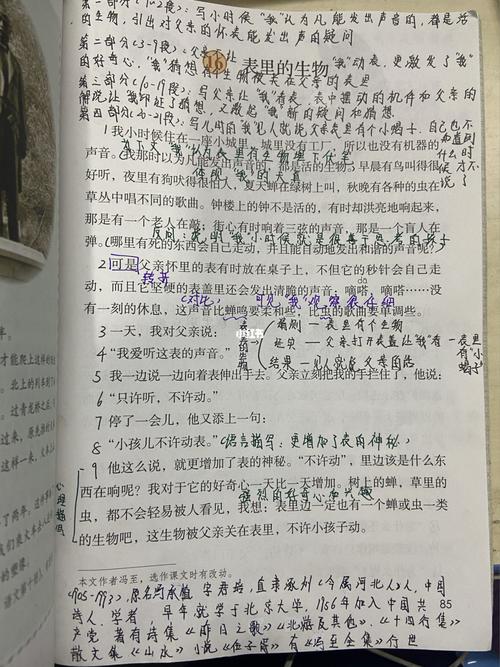 第一部分(1-2段):写小时候"我"认为凡能发出声音的,都是活
的生物,引出对父亲的怀表能发出声的疑问
第二部分(3-9段):父亲不让"我"动表,更激发了"我"
的好奇心,"我"猜想有生物被关在父亲的表里
16 表里的生物
第三部分(10-19段):写父亲让"我"看表,表中摆动的机件和父亲的
解说让"我"印证了猜想,又激起"我"新的疑问和猜想
第四部分(20-21段):写儿时的"我"见人就说父亲表里有个小蝎子,自己也不
知道到什么时候才不说了
1 我小时候住在一座小城里,城里没有工厂,所以也没有机器的
为下文"我"认为表里有生物埋下伏笔
声音。(我那时以为凡能发出声音的,都是活的生物;早晨有鸟叫得很
体现"我"的天真
好听,夜里有狗吠得很怕人,夏天蝉在绿树上叫,秋晚有各种的虫在
草丛中唱不同的歌曲。钟楼上的钟不是活的,有时却洪亮地响起来,
那是有一个老人在敲;街心有时响着三弦的声音,那是一个盲人在
反问:说明"我"小时候就是很善于思考的孩子
弹。(哪里有死的东西会自己走动,并且能自动地发出和谐的声音呢?)
2 可是父亲怀里的表有时放在桌子上,不但它的秒针会自己走
转折
动,而且它坚硬的表盖里还会发出清脆的声音:嘀嗒,嘀嗒……没
(对比) 可见"我"观察很仔细
有一刻的休息,这声音比蝉鸣要柔和些,比虫的歌曲要单调些。
3 一天,我对父亲说:
表里的生物
猜测—表里有个生物
4 "我爱听这表的声音。"
证实—父亲打开表盖让"我"看—表里有"小蝎子"
结果—见人就说父亲
5 我一边说一边向着表伸出手去。父亲立刻把我的手拦住了,他说:
6 "只许听,不许动。"
7 停了一会儿,他又添上一句:
8 "小孩儿不许动表。"(语言描写:更增加了表的神秘)
9 他这么说,就更增加了表的神秘。"不许动",里边该是什么东
西在响呢?我对于它的好奇心一天比一天增加。树上的蝉,草里的
强烈的好奇心和兴趣
心理描写
虫,都不会轻易被人看见,我想:表里边一定也有一个蝉或虫一类
的生物吧,这生物被父亲关在表里,不许小孩子动。
本文作者冯至,选作课文时有改动。
(1905-1993),原名冯承植,字君培,直隶涿州(今属河北)人,中国
85
诗人,学者,早年就学于北京大学,1956年加入中国共
产党 著有诗集《昨日之歌》《北游及其他》、《十四行集》
散文集《山水》小说《伍子胥》有《冯至全集》行世
才能爬上这样的
北上的列车到了
过青龙桥之后,
过来,原先推的
这样一来,火车
小红书